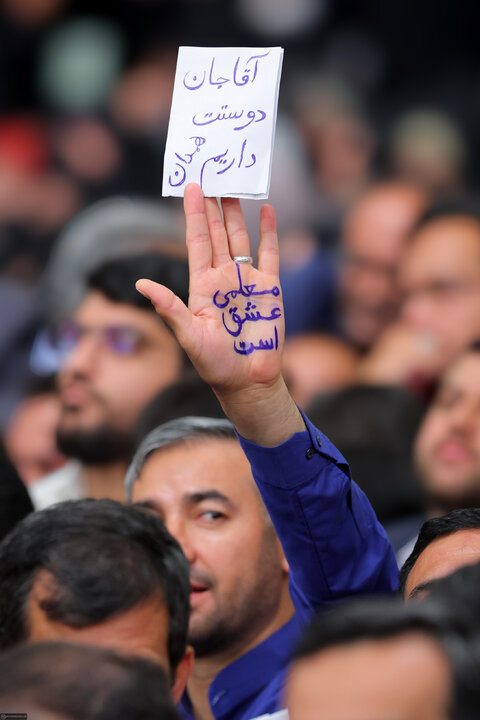 آقاجان
دوستت
داریم همدان
معلمی
عشق
است